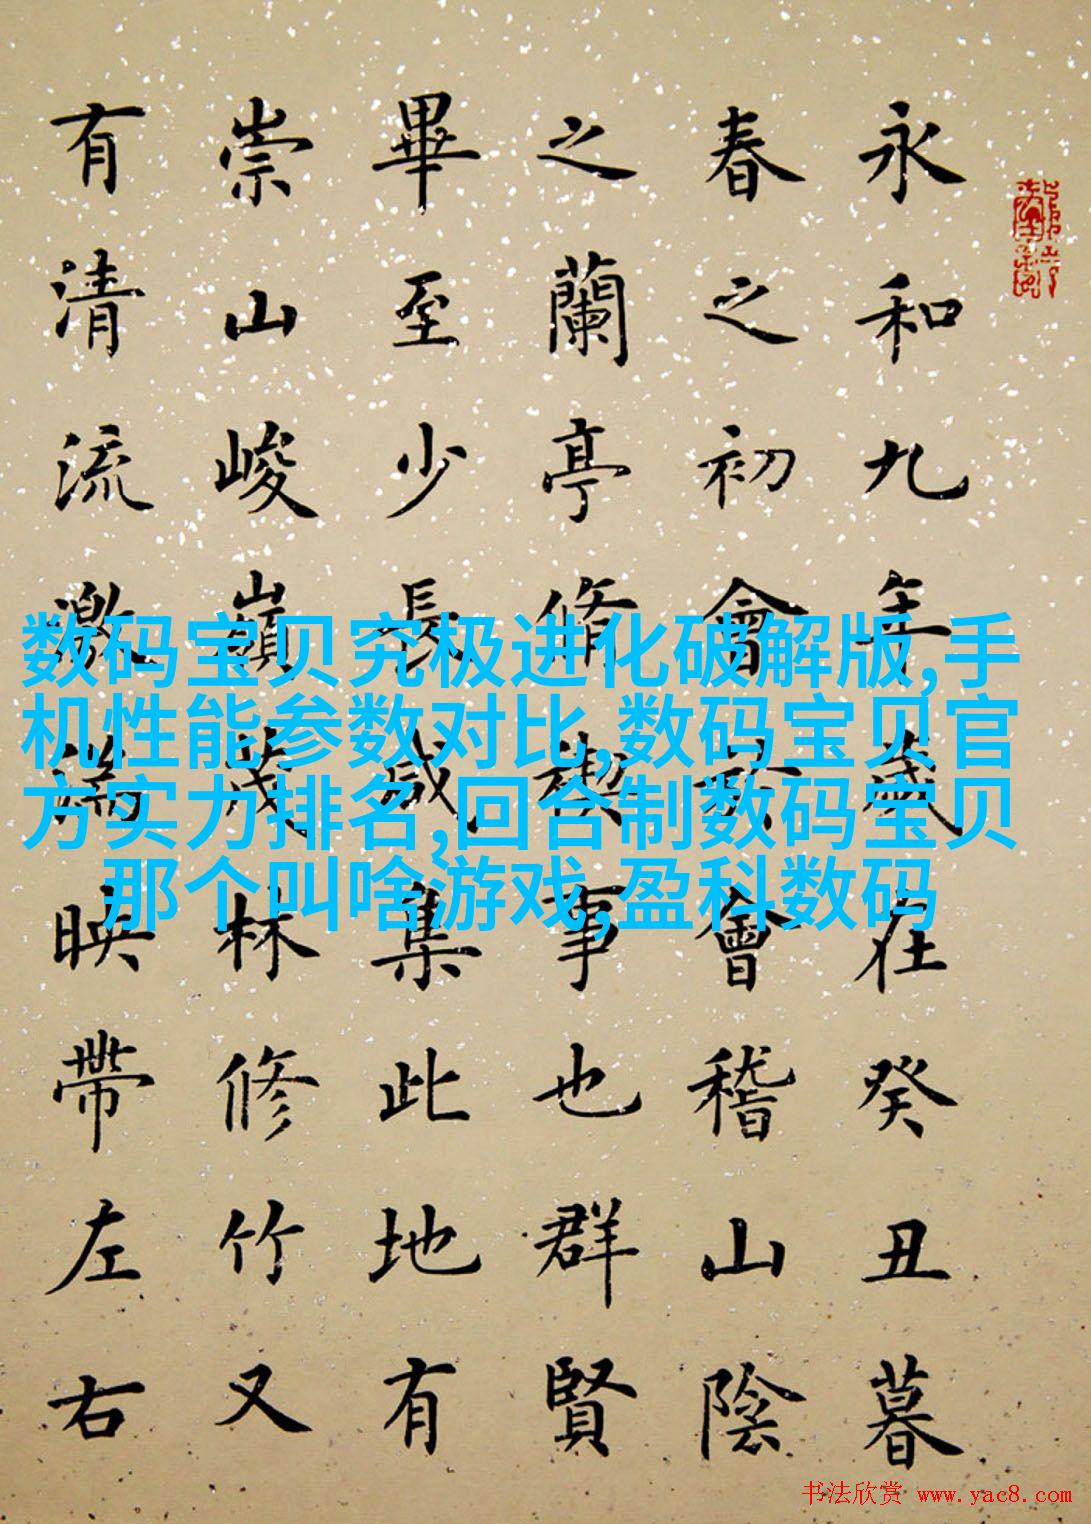 永和九年歲在癸丑暮
春之初會於會稽山陰
之蘭亭脩禊事也群賢
畢至少長咸集此地有
崇山峻嶺茂林修竹又
有清流激湍映帶左右
数码宝贝究极进化破解版,手
机性能参数对比,数码宝贝官
方实力排名,回合制数码宝贝
那个叫啥游戏,盈科数码
书法欣赏 www.yac8.com